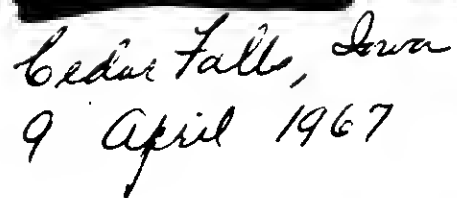 Cedar Falls, Iowa
9 April 1967